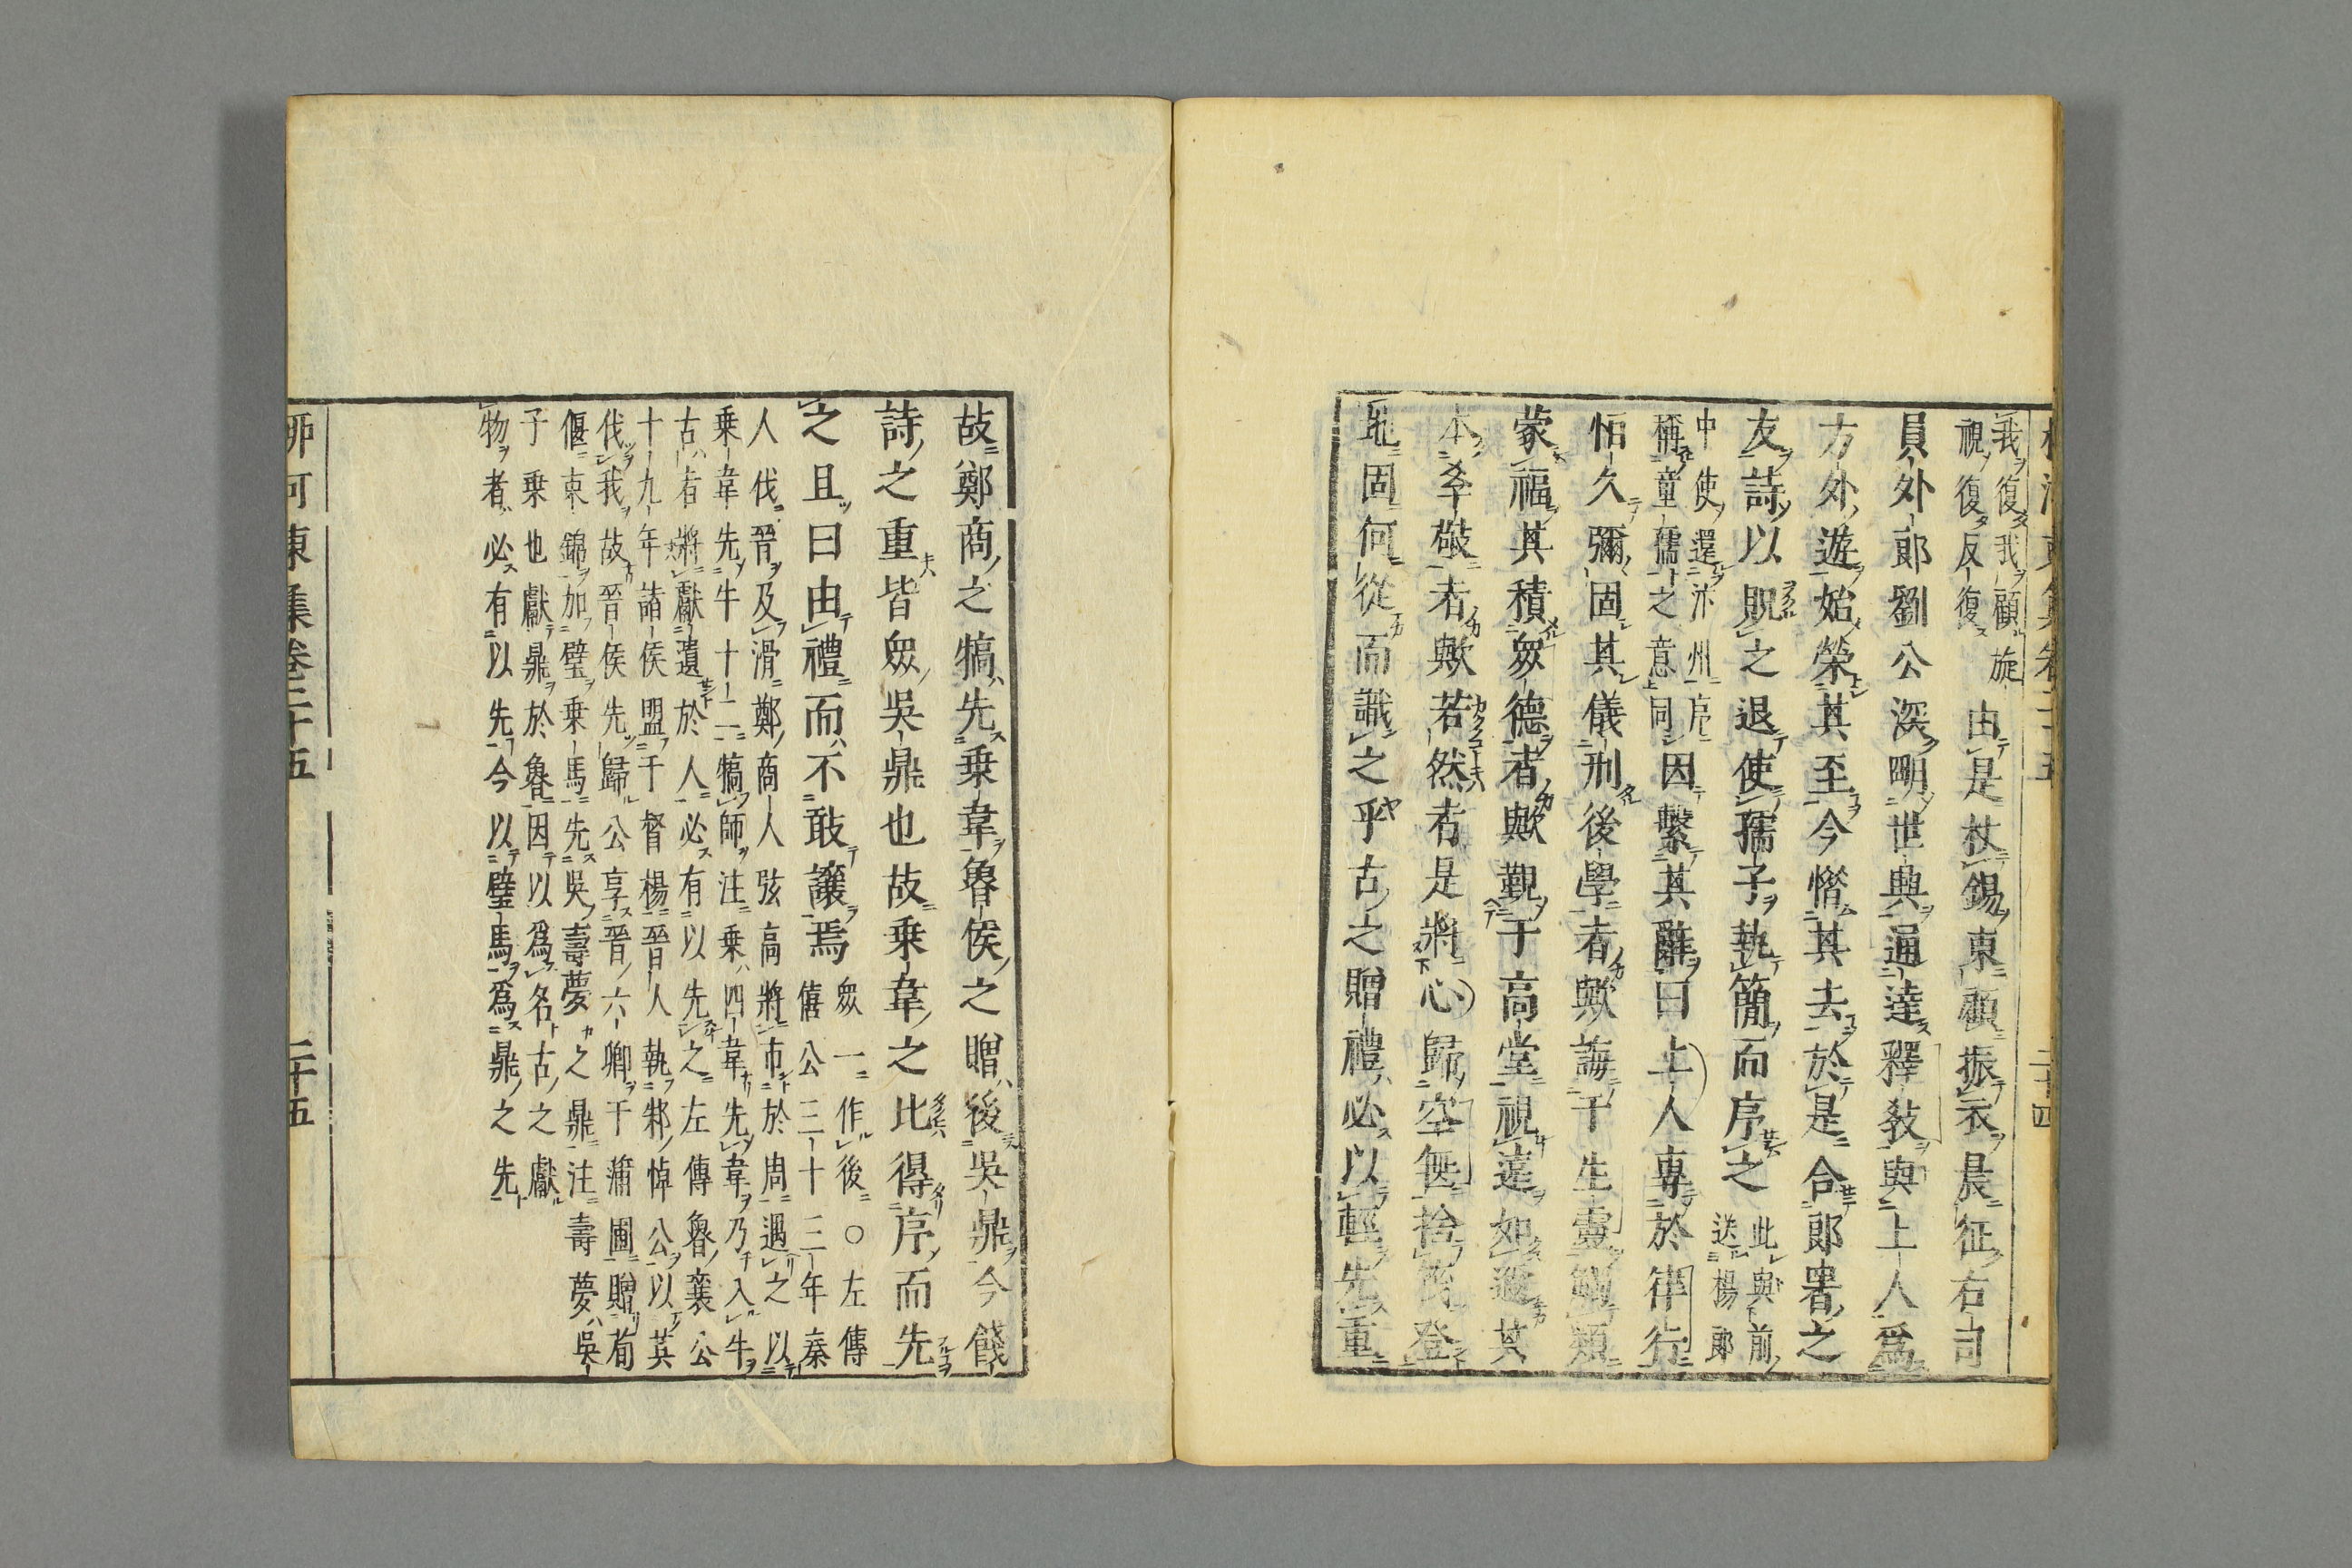 我復我顧旋
視復反復由是杖錫東顧振衣晨征右司
員外郎劉公深明世典通達釋教與上人爲
方外遊始榮其至今惜其去於是合郎署之
友詩以貺之退使孺子執簡而序之此與前
送楊郎
中使還汴州序
稱童孺之意同因繫其辭曰上人專於律行
恒久彌固其儀刑後學者歟誨于生靈觸類
蒙福其積衆德者歟覲于高堂視遠如邇其
本孝敬者歟若然者是將心歸空無捨筏登
地固何從而識之乎古之贈禮必以輕先重
二十四
故鄭商之犒先乘韋魯侯之贈後吳鼎今餞
詩之重皆衆吳鼎也故乘韋之比得序而先
之且曰由禮而不敢讓焉衆一作後○左傳
僖公三十三年秦
人伐晉及滑鄭商人弦高將市於周遇之以
乘韋先牛十二犒師注乘四韋先韋乃入牛
古者將獻遺於人必有以先之左傳魯襄公
十九年諸侯盟于督楊晉人執邾悼公以其
伐我故晉侯先歸公享晉六卿于蒲圃贈荀
偃束錦加璧乘馬先吳壽夢之鼎注壽夢吳
子乘也獻鼎於魯因以爲名古之獻
物者必有以先今以璧馬爲鼎之先
柳河東集卷二十五 二十五